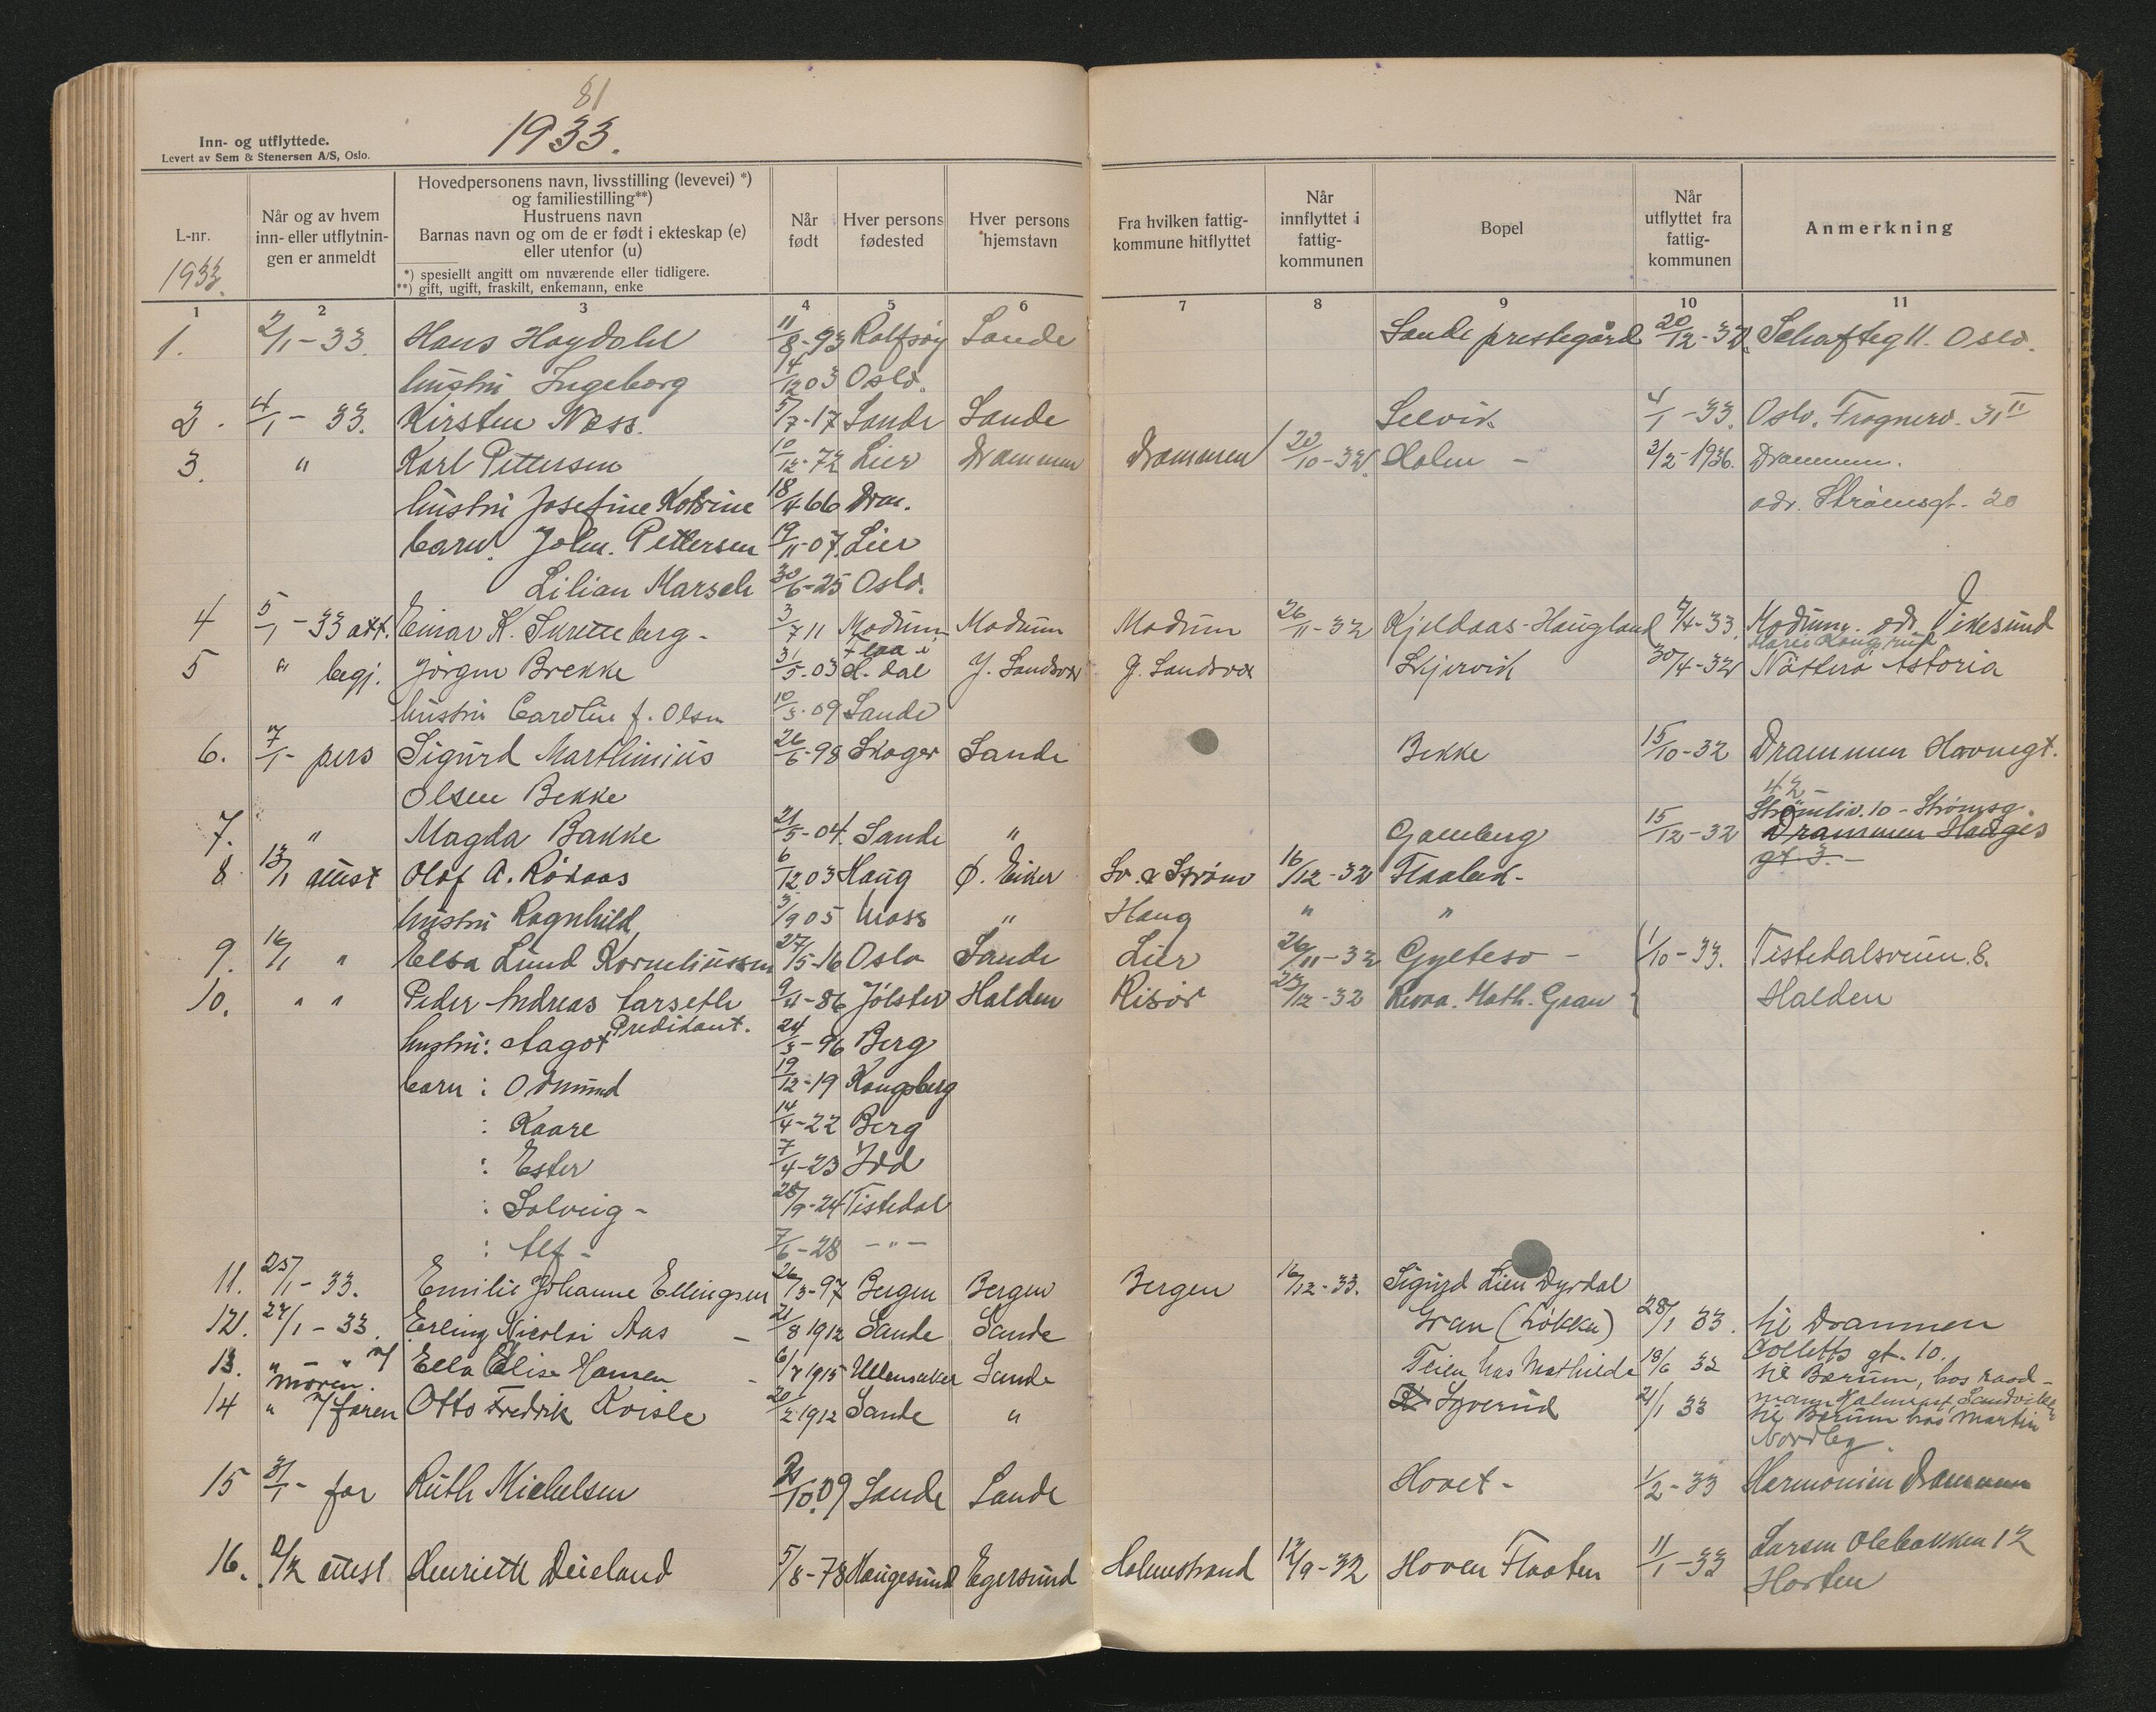 81
1933.
Inn- og utflyttede.
Levert av Sem & Stenersen A/S, Oslo.
L-nr.
1933.
Når og av hvem inn- eller utflytnin-gen er anmeldt
Hovedpersonens navn, livsstilling (levevei) *)
og familiestilling**)
Hustruens navn
Barnas navn og om de er født i ekteskap (e)
eller utenfor (u)
*) spesielt angitt om nuværende eller tidligere.
**) gift, ugift, fraskilt, enkemann, enke
Når født
Hver persons fødested
Hver persons hjemstavn
Fra hvilken fattig-kommune hitflyttet
Når innflyttet i fattig-kommunen
Bopel
Når utflyttet fra fattig-kommunen
Anmerkning
1 2 3 4 5 6 7 8 9 10 11
1. 2/1-33. Hans Høydahl 11/8-93 Rolfsøy Sande Sande prestegård 20/12-32 Schafteg 11. Oslo.
hustru Ingeborg 14/12 03 Oslo.
2. 4/1-33. Kirsten Næss. 5/7-17 Sande Sande Selvik 4/1-33. Oslo. Frognerv. 31 II
3. " Karl Pettersen 10/12-72 Lier Drammen Drammen 20/10-32. Holm - 3/2-1936. Drammen.
hustru Josefine Katrine 18/4 66 Drm. adr. Strømsgt. 20
barn. John. Pettersen 19/11-07. Lier
Lilian Marsch 30/6-25 Oslo.
4 5/1-33 att. Einar K. Skretteberg- 3/7 11 Modum Modum Modum 26/11-32 Kjeldaas-Haugland 7/4-33. Modum. adr. Vikesund
5 " begj. Jörgen Brekke 31/5-03 Flaa i H.dal Y. Sandsvær Y. Sandsvær Skjervik 30/4-32 Nøtterø Astoria
hustru Caroline f. Olsen 10/3-09 Sande
6. 7/1- pers Sigurd Marthinius 26/6-98 Skoger Sande Bekke 15/10-32 Drammen Havnegt.
Olsen Bekke 42-
7. " Magda Bakke 21/5-04. Sande " Galleberg 15/12-32 Strømliv. 10 - Strømsg.
Drammen Hauges
gt 3. -
8 13/1 attest Olaf A. Rökaas 6/12 03 Haug Ø. Eiker Sv. & Strøm 16/12-32 Flaaten-
hustru Ragnhild 3/9 05 Moss " Haug " "
9. 16/1 " Elsa Lund Korneliussen 27/5-16 Oslo Sande Lier 26/11-32 Gylteso - 1/10-33. Tistedalsveien. 8.
10. " " Peder Andreas Carseth 9/4-86 Jölster Halden Risör 23/12-32 Revaa. Math. Gran Halden
Predikant.
hustru: Aagot 24/3-96 Berg
barn: Odmund 19/12-19 Kongsberg
: Kaare 14/4-22 Berg
: Ester 7/4-23 Idd
: Solveig - 28/9-24 Tistedal
: Alf - 7/6-28 -"-
11. 25/1-33. Emilie Johanne Ellingsen 26/3-97 Bergen Bergen Bergen 16/12-33. Sigurd Lien Dyrdal
12. 27/1-33. Erling Nicolai Aas - 21/8 1912 Sande Sande Gran (Løkka) 28/1 33. til Drammen
Colletts gt. 10.
13. " - " v/ moren. Ella Elise Hansen - 6/7 1915 Ullensaker Sande Teien hos Mathilde 18/6 32 til Bærum, hos raad-
mann Holmsen, Sandviken
14 " v/ faren Otto Fredrik Kvisle 20/2 1912 Sande " Syverud 21/1 33 til Bærum hos Martin
Nordby.
15 31/1- far Ruth Michelsen 21/10.09 Sande Sande Hovet - 1/2-33 Harmonien Drammen
16. 2/2 attest Henriette Dueland 5/8-78 Haugesund Egersund Holmestrand 12/9-32 Hoven Flaaten 11/1-33 Larsen Olebakken 12
Horten